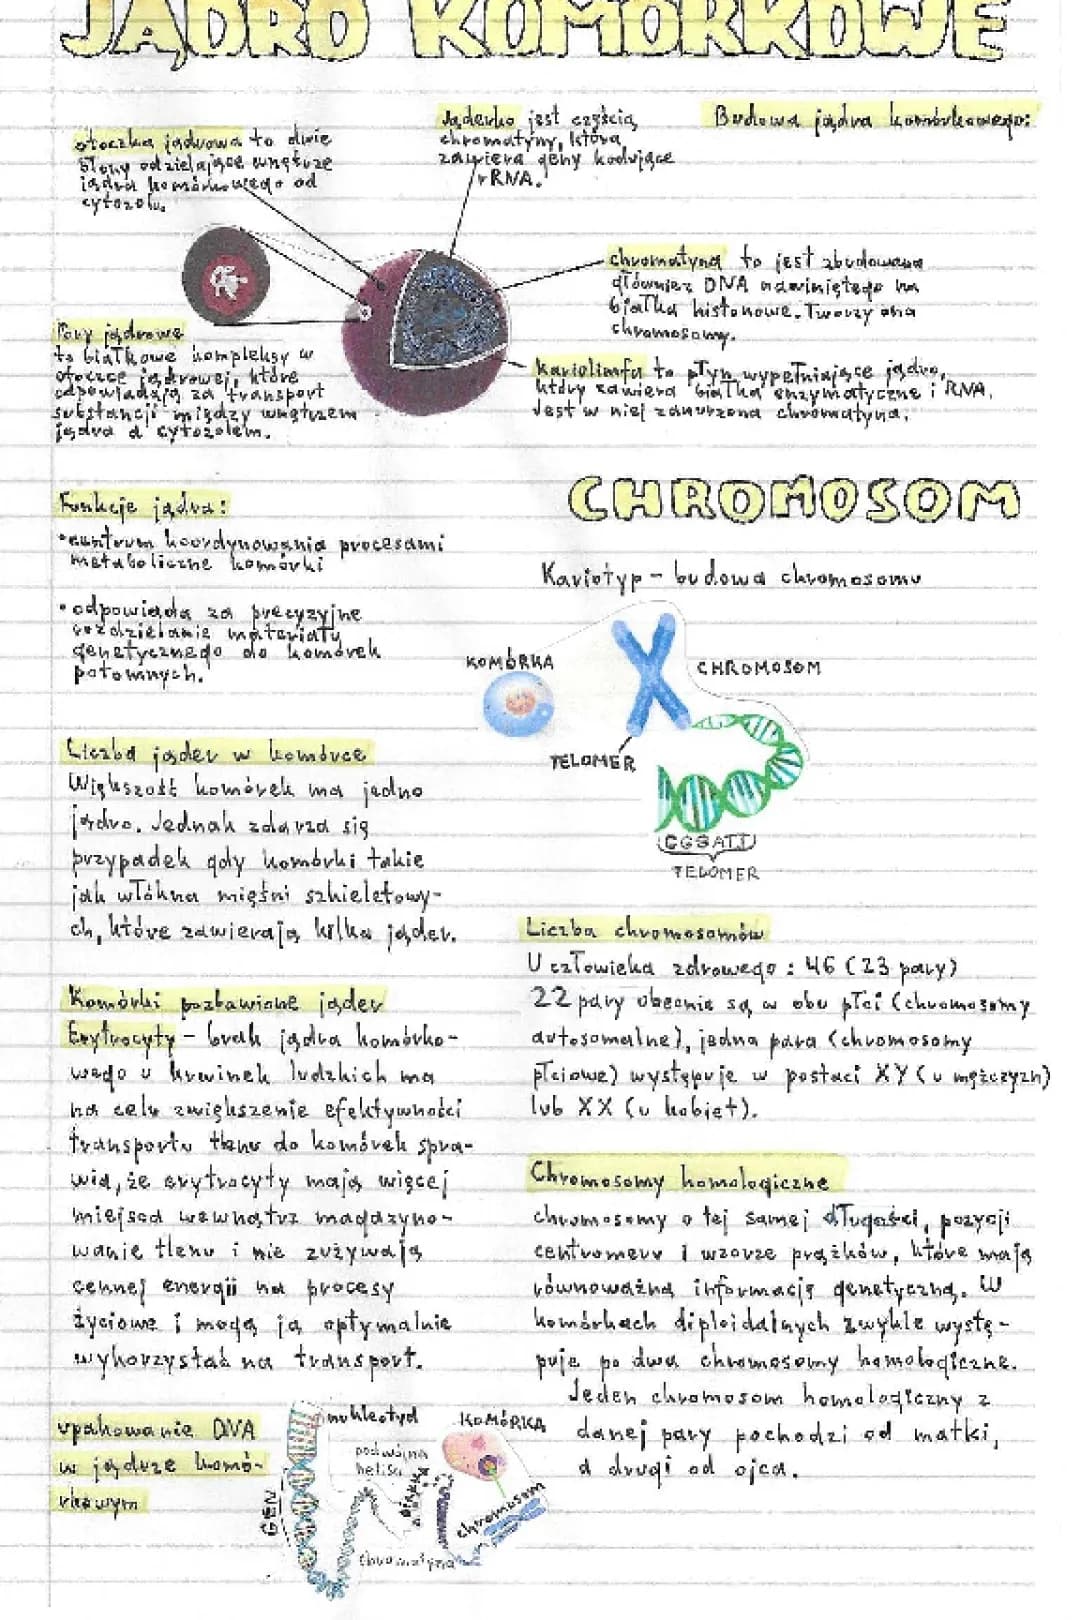 JĄDRO KOMÓRKOWE
Budowa jądra komórkowego:
otoczka jądrowa to dwie
błony oddzielające wnętrze
jądra komórkowego od
cytozolu.
Jąderko jest częścią
chromatyny, która
zawiera geny kodujące
rRNA.
chromatyna to jest zbudowana
głównież DNA nawiniętego na
białka histonowe. Tworzy ona
chromosomy.
Pory jądrowe
to białkowe kompleksy w
otoczce jądrowej, które
odpowiadają za transport
substancji między wnętrzem
jądra a cytozolem.
kariolimfa to płyn wypełniające jądro,
który zawiera białka enzymatyczne i RNA.
Jest w niej zanurzona chromatyna.
Funkcje jądra:
•centrum koordynowania procesami
metaboliczne komórki
•odpowiada za precyzyjne
rozdzielanie materiału
genetycznego do komórek
potomnych.
Liczba jąder w komórce
Większość komórek ma jedno
jądro. Jednak zdarza się
przypadek gdy komórki takie
jak włókna mięśni szkieletowy-
ch, które zawierają kilka jąder.
Komórki pozbawione jąder
Erytrocyty – brak jądra komórko-
wego u krwinek ludzkich ma
na celu zwiększenie efektywności
transportu tlenu do komórek spra-
wia, że erytrocyty mają więcej
miejsca wewnątrz magazyno-
wanie tlenu i nie zużywają
cennej energii na procesy
życiowe i mogą ją optymalnie
wykorzystać na transport.
upakowanie DNA
w jądrze komó-
rkowym
nukleotyd
podwójna
helisa
GEN
KOMÓRKA
chromosom
chromatyna
CHROMOSOM
Kariotyp – budowa chromosomu
KOMÓRKA
CHROMOSOM
TELOMER
TELOMER
Liczba chromosomów
U człowieka zdrowego : 46 (23 pary)
22 pary obecnie są w obu płci (chromosomy
autosomalne), jedna para (chromosomy
płciowe) występuje w postaci XY (u mężczyzn)
lub XX (u kobiet).
Chromosomy homologiczne
chromosomy o tej samej długości, pozycji
centromeru i wzorze prążków, które mają
równoważną informację genetyczną. W
komórkach diploidalnych zwykle wystę-
puje po dwa chromosomy homologiczne.
Jeden chromosom homologiczny z
danej pary pochodzi od matki,
a drugi od ojca.